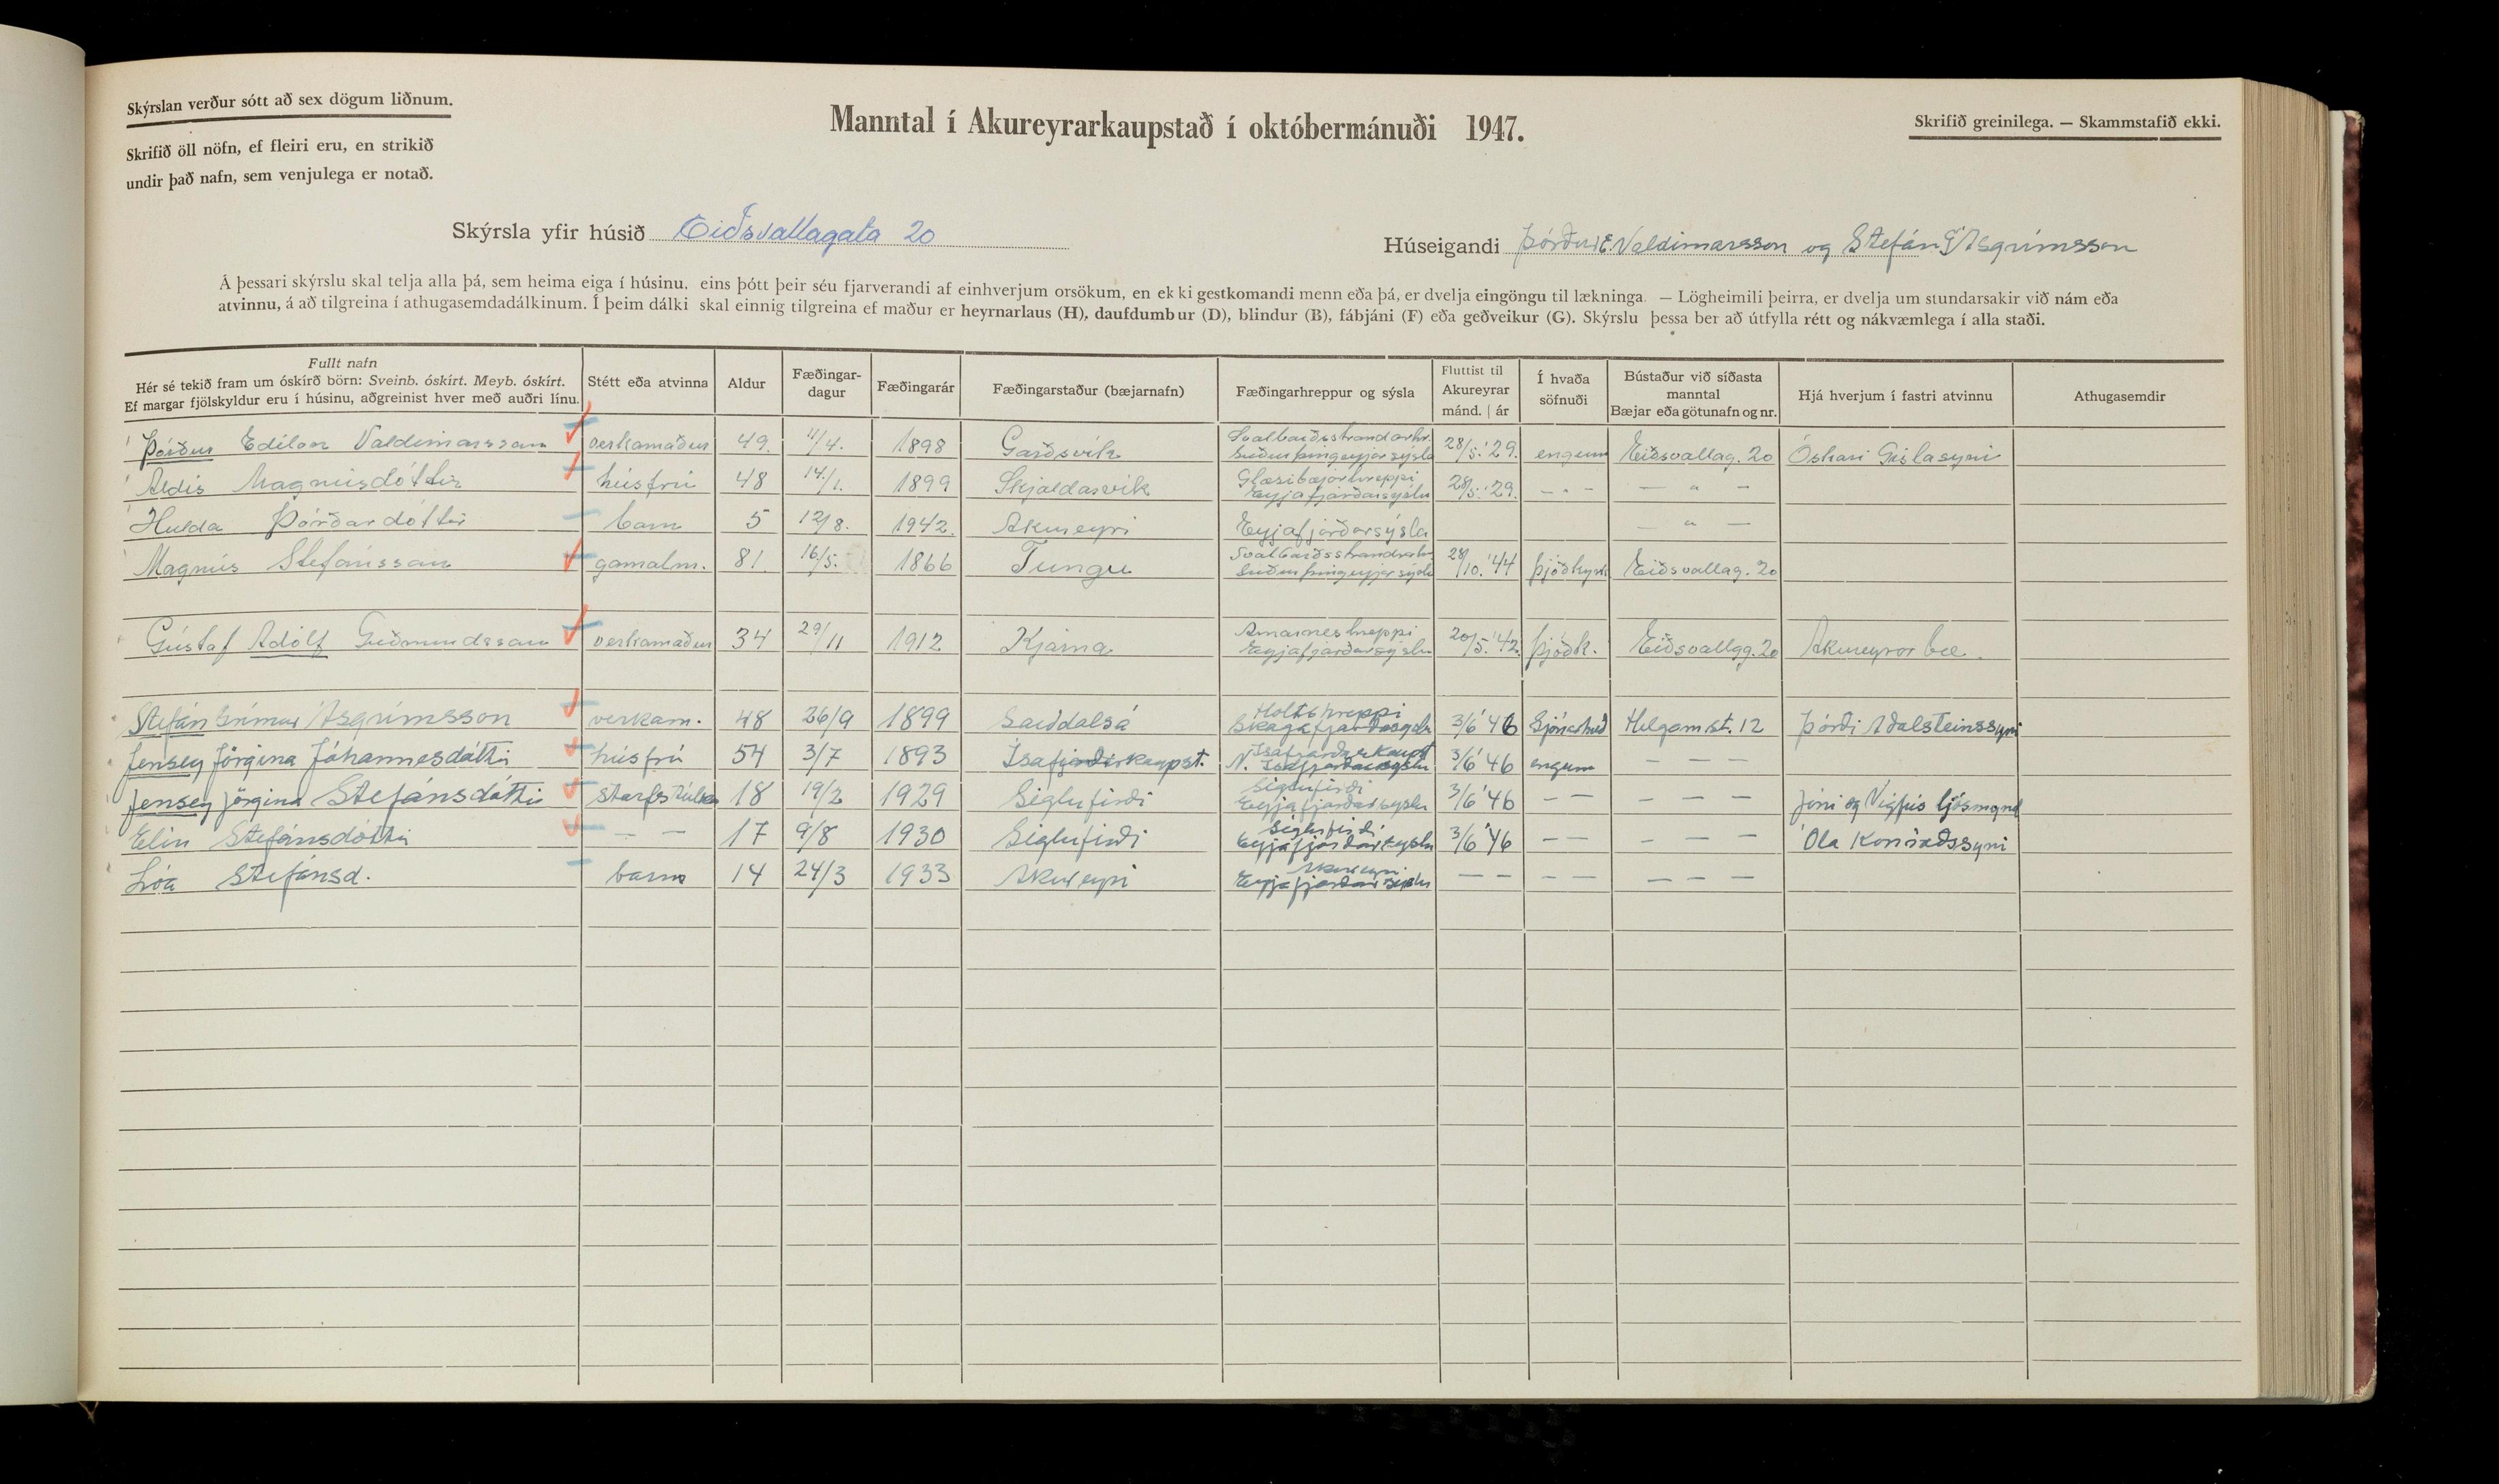 Skýrslan verður sótt að sex dögum liðnum.
Skrifið öll nöfn, ef fleiri eru, en strikið
undir það nafn, sem venjulega er notað.
Manntal í Akureyrarkaupstað í októbermánuði 1947.
Skrifið greinilega. — Skammstafið ekki.
Skýrsla yfir húsið Eiðsvallagata 20
Húseigandi Þórður E. Valdimarsson og Stefán G Ásgrímsson
Á þessari skýrslu skal telja alla þá, sem heima eiga í húsinu, eins þótt þeir séu fjarverandi af einhverjum orsökum, en ekki gestkomandi menn eða þá, er dvelja eingöngu til lækninga. — Lögheimili þeirra, er dvelja um stundarsakir við nám eða
atvinnu, á að tilgreina í athugasemdadálkinum. Í þeim dálki skal einnig tilgreina ef maður er heyrnarlaus (H), daufdumbur (D), blindur (B), fábjáni (F) eða geðveikur (G). Skýrslu þessa ber að útfylla rétt og nákvæmlega í alla staði.
Fullt nafn
Hér sé tekið fram um óskírð börn: Sveinb. óskírt. Meyb. óskírt.
Ef margar fjölskyldur eru í húsinu, aðgreinist hver með auðri línu.
Stétt eða atvinna
Aldur
Fæðingar-
dagur
Fæðingarár
Fæðingarstaður (bæjarnafn)
Fæðingarhreppur og sýsla
Fluttist til
Akureyrar
mánd. | ár
Í hvaða
söfnuði
Bústaður við síðasta
manntal
Bæjar eða götunafn og nr.
Hjá hverjum í fastri atvinnu
Athugasemdir
Þórður Edilon Valdimarsson verkamaður 49. 11/4. 1898 Garðsvík Svalbarðsstrandarhr. Suðurþingeyjarsýslu 28/5. '29. engum Eiðsvallag. 20 Óskari Gíslasyni
Aldís Magnúsdóttir húsfrú 48 14/1. 1899 Skjaldarvík Glæsibæjarhreppi Eyjafjarðarsýslu 28/5. '29. - " - — " —
Hulda Þórðardóttir barn 5 12/8. 1942. Akureyri Eyjafjarðarsýsla — " —
Magnús Stefánsson gamalm. 81. 16/5. 1866 Tungu Svalbarðsstrandarhr. Suðurþingeyjarsýslu 28/10. '44 þjóðkirk Eiðsvallag. 20
Gústaf Adólf Guðmundsson verkamaður 34 29/11 1912 Kjarna Arnarneshreppi Eyjafjarðarsýslu 20/5. '42. þjóðk. Eiðsvallag. 20 Akureyrarbæ.
Stefán Grímur Ásgrímsson verkam. 48 26/9 1899 Holtshreppi Skagafjarðasyslu 3/6 '46 Helgamst. 12 Þórði Aðalsteinssyni
Jensey Jörgína Jóhannesdóttir húsfrú 54 3/7 1893 Ísafjarðarkaupst. Isafjarðarkaupst N. Isafjarðarsyslu 3/6 '46 engum — — —
Jensey Jörgína Stefánsdóttir starfstúlka 18 19/2 1929 Siglufirði Siglufirði Eyjafjarðarsyslu 3/6 '46 — — — — — Jóni og Vigfús ljósmynd
Elín Stefánsdóttir — — 17 9/8 1930 Siglufirði Siglufirði Eyjafjarðarsyslu 3/6 '46 — — — — — Óla Konráðssyni
Lóa Stefánsd. barn 14 24/3 1933 Akureyri Akureyri Eyjafjarðarsyslu — — — — — — —